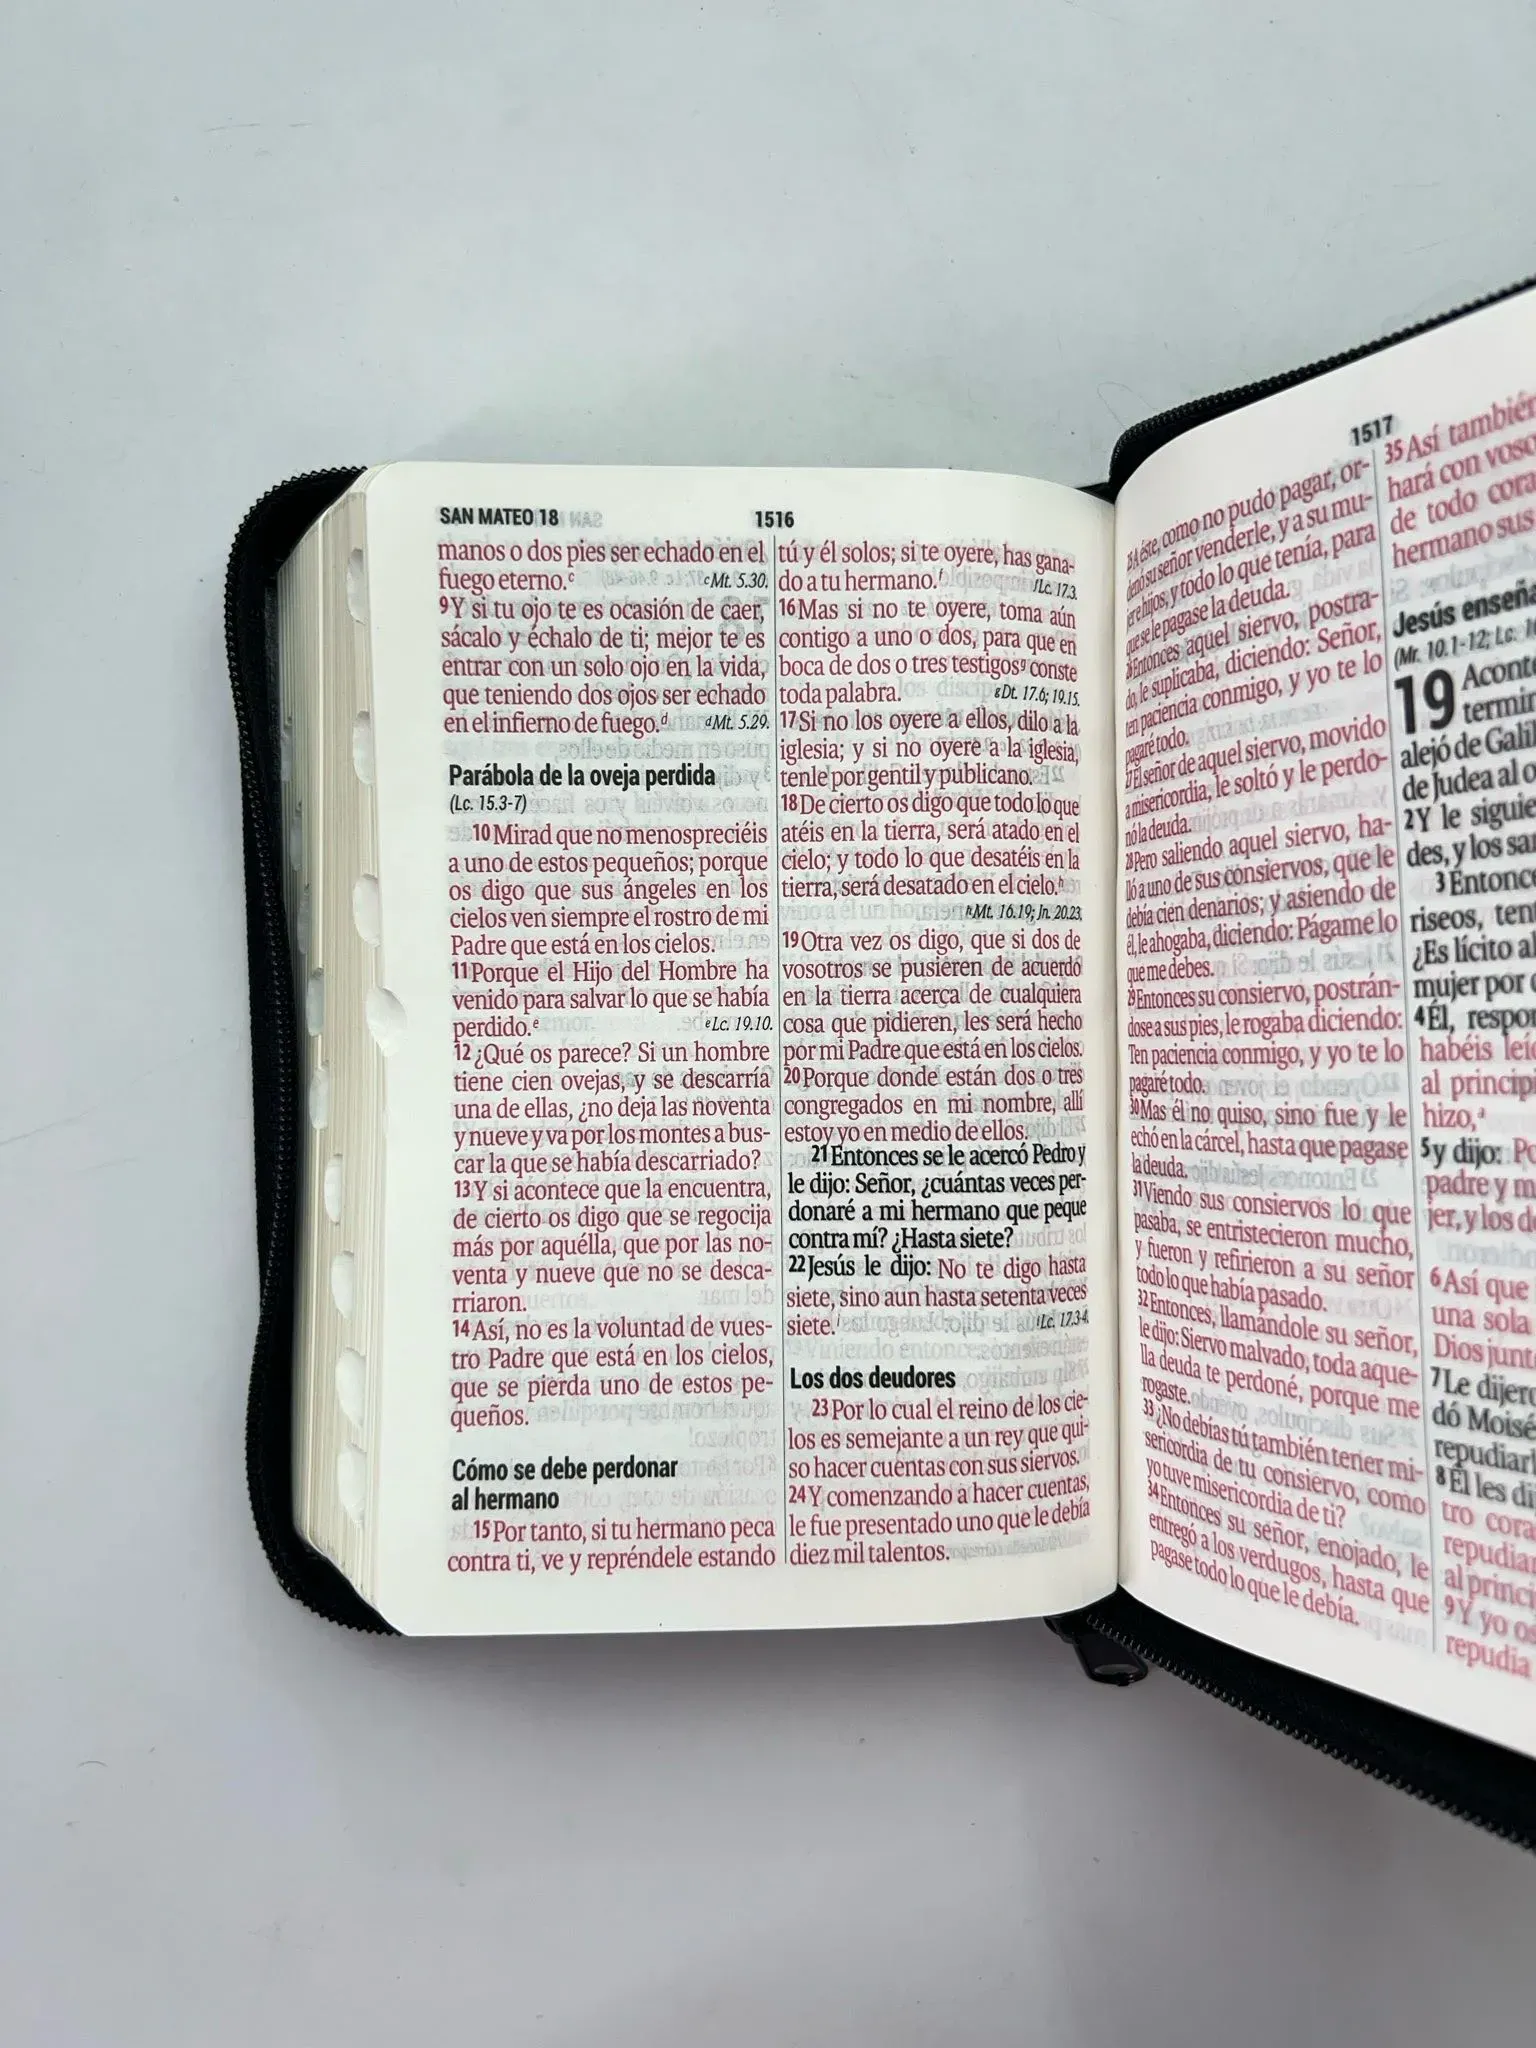 SAN MATEO 18
1516
manos o dos pies ser echado en el
fuego eterno.c
c Mt. 5.30.
9 Y si tu ojo te es ocasión de caer,
sácalo y échalo de ti; mejor te es
entrar con un solo ojo en la vida,
que teniendo dos ojos ser echado
en el infierno de fuego.d
d Mt. 5.29.
Parábola de la oveja perdida
(Lc. 15.3-7)
10 Mirad que no menospreciéis
a uno de estos pequeños; porque
os digo que sus ángeles en los
cielos ven siempre el rostro de mi
Padre que está en los cielos.
11 Porque el Hijo del Hombre ha
venido para salvar lo que se había
perdido.e
e Lc. 19.10.
12 ¿Qué os parece? Si un hombre
tiene cien ovejas, y se descarría
una de ellas, ¿no deja las noventa
y nueve y va por los montes a bus-
car la que se había descarriado?
13 Y si acontece que la encuentra,
de cierto os digo que se regocija
más por aquélla, que por las no-
venta y nueve que no se desca-
rriaron.
14 Así, no es la voluntad de vues-
tro Padre que está en los cielos,
que se pierda uno de estos pe-
queños.
Cómo se debe perdonar
al hermano
15 Por tanto, si tu hermano peca
contra ti, ve y repréndele estando
tú y él solos; si te oyere, has gana-
do a tu hermano.f
f Lc. 17.3.
16 Mas si no te oyere, toma aún
contigo a uno o dos, para que en
boca de dos o tres testigosg conste
toda palabra.
g Dt. 17.6; 19.15.
17 Si no los oyere a ellos, dilo a la
iglesia; y si no oyere a la iglesia,
tenle por gentil y publicano.
18 De cierto os digo que todo lo que
atéis en la tierra, será atado en el
cielo; y todo lo que desatéis en la
tierra, será desatado en el cielo.h
h Mt. 16.19; Jn. 20.23.
19 Otra vez os digo, que si dos de
vosotros se pusieren de acuerdo
en la tierra acerca de cualquiera
cosa que pidieren, les será hecho
por mi Padre que está en los cielos.
20 Porque donde están dos o tres
congregados en mi nombre, allí
estoy yo en medio de ellos.
21 Entonces se le acercó Pedro y
le dijo: Señor, ¿cuántas veces per-
donaré a mi hermano que peque
contra mí? ¿Hasta siete?
22 Jesús le dijo: No te digo hasta
siete, sino aun hasta setenta veces
siete.i
i Lc. 17.3-4.
Los dos deudores
23 Por lo cual el reino de los cie-
los es semejante a un rey que qui-
so hacer cuentas con sus siervos.
24 Y comenzando a hacer cuentas,
le fue presentado uno que le debía
diez mil talentos.
1517
25 A éste, como no pudo pagar, or-
denó su señor venderle, y a su mu-
jer e hijos, y todo lo que tenía, para
que se le pagase la deuda.
26 Entonces aquel siervo, postra-
do, le suplicaba, diciendo: Señor,
ten paciencia conmigo, y yo te lo
pagaré todo.
27 El señor de aquel siervo, movido
a misericordia, le soltó y le perdo-
nó la deuda.
28 Pero saliendo aquel siervo, ha-
lló a uno de sus consiervos, que le
debía cien denarios; y asiendo de
él, le ahogaba, diciendo: Págame lo
que me debes.
29 Entonces su consiervo, postrán-
dose a sus pies, le rogaba diciendo:
Ten paciencia conmigo, y yo te lo
pagaré todo.
30 Mas él no quiso, sino fue y le
echó en la cárcel, hasta que pagase
la deuda.
31 Viendo sus consiervos lo que
pasaba, se entristecieron mucho,
y fueron y refirieron a su señor
todo lo que había pasado.
32 Entonces, llamándole su señor,
le dijo: Siervo malvado, toda aque-
lla deuda te perdoné, porque me
rogaste.
33 ¿No debías tú también tener mi-
sericordia de tu consiervo, como
yo tuve misericordia de ti?
34 Entonces su señor, enojado, le
entregó a los verdugos, hasta que
pagase todo lo que le debía.
35 Así también
hará con voso
de todo cora
hermano sus
Jesús enseña
(Mr. 10.1-12; Lc. 1
19 Aconte
termin
alejó de Galil
de Judea al o
2 Y le siguie
des, y los sa
3 Entonce
riseos, ten
¿Es lícito al
mujer por
4 Él, respon
habéis leíd
al principi
hizo,a
5 y dijo: Po
padre y m
jer, y los d
6 Así que
una sola
Dios junt
7 Le dijero
dó Moisé
repudiar
8 Él les di
tro cora
repudia
al princi
9 Y yo os
repudia